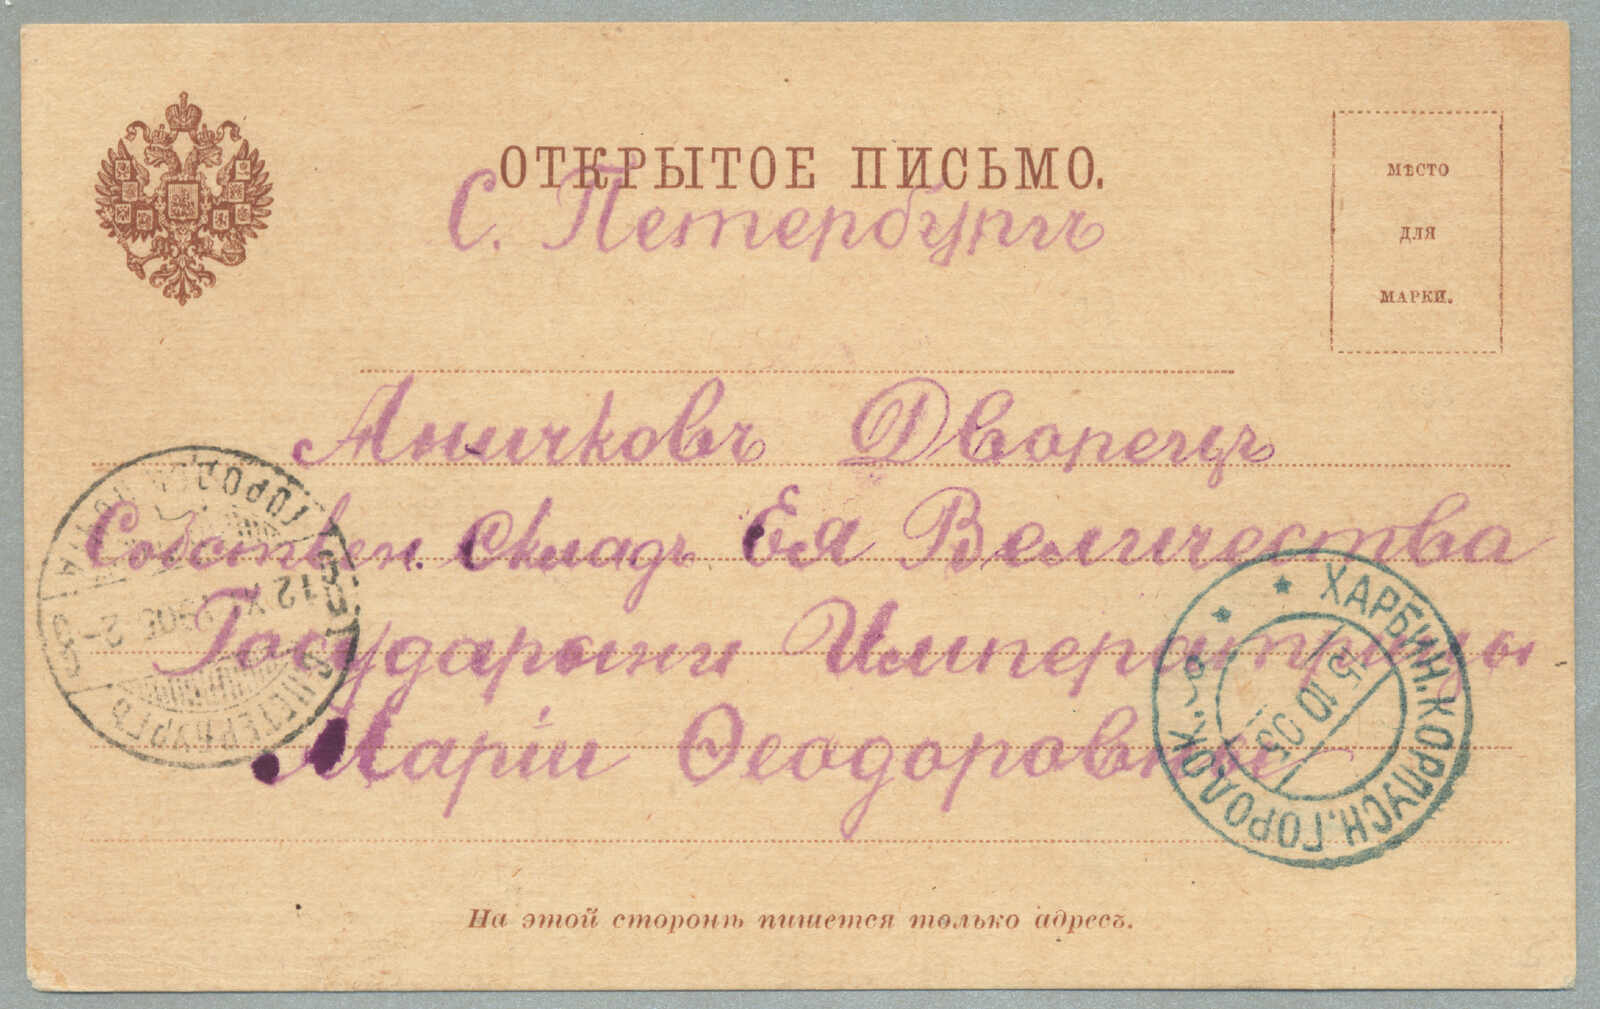 ОТКРЫТОЕ ПИСЬМО.
МѢСТО
ДЛЯ
МАРКИ.
С. Петербургъ
Аничковъ Дворецъ
Собствен. Складъ Ея Величества
Государыни Императрицы
Маріи Ѳеодоровны
ХАРБИН. КОРПУСН. ГОРОДОК.
15.10.05
С.ПЕТЕРБУРГЪ
ГОРОДСК. ПОЧТА
12 X 1905 2-
На этой сторонѣ пишется только адресъ.